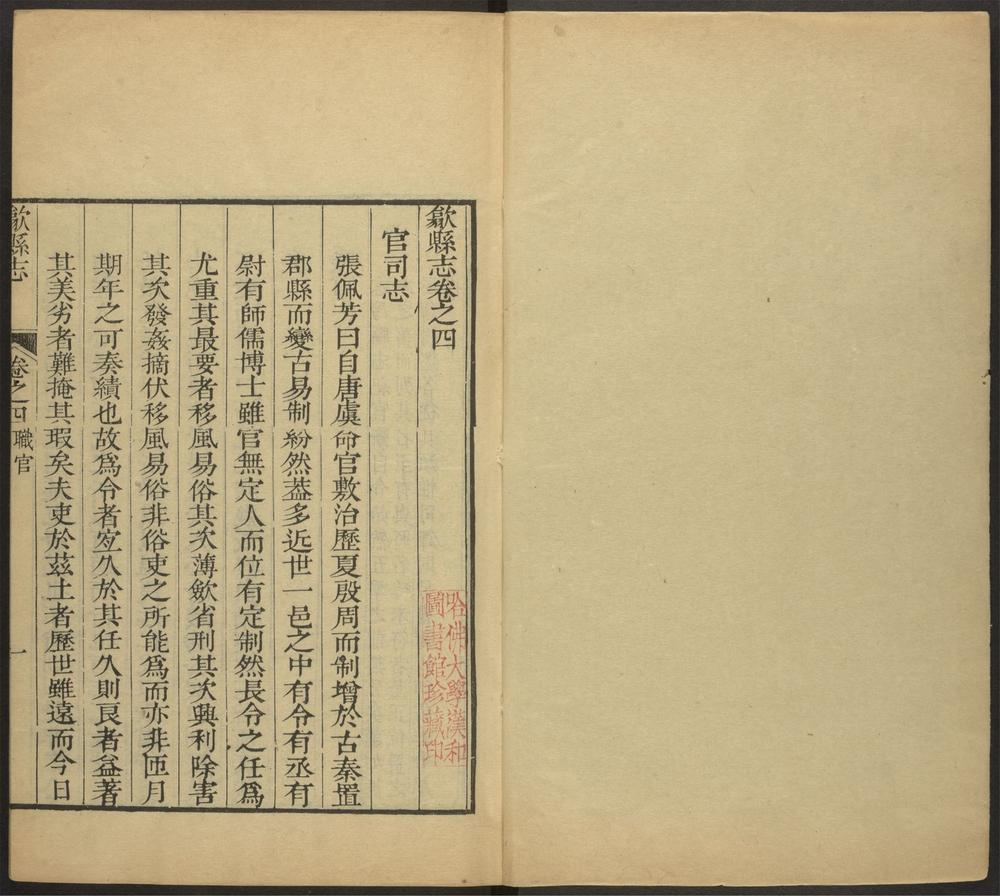 歙縣志卷之四
官司志
張佩芳曰自唐虞命官敷治歷夏殷周而制增於古秦置
郡縣而變古易制紛然葢多近世一邑之中有令有丞有
尉有師儒博士雖官無定人而位有定制然長令之任爲
尤重其最要者移風易俗其次薄斂省刑其次興利除害
其次發姦摘伏移風易俗非俗吏之所能爲而亦非匝月
期年之可奏績也故爲令者宐久於其任久則良者益著
其美劣者難掩其瑕矣夫吏於茲土者歷世雖遠而今日
歙縣志
卷之四
職官
一
哈佛大學漢和
圖書館珍藏印